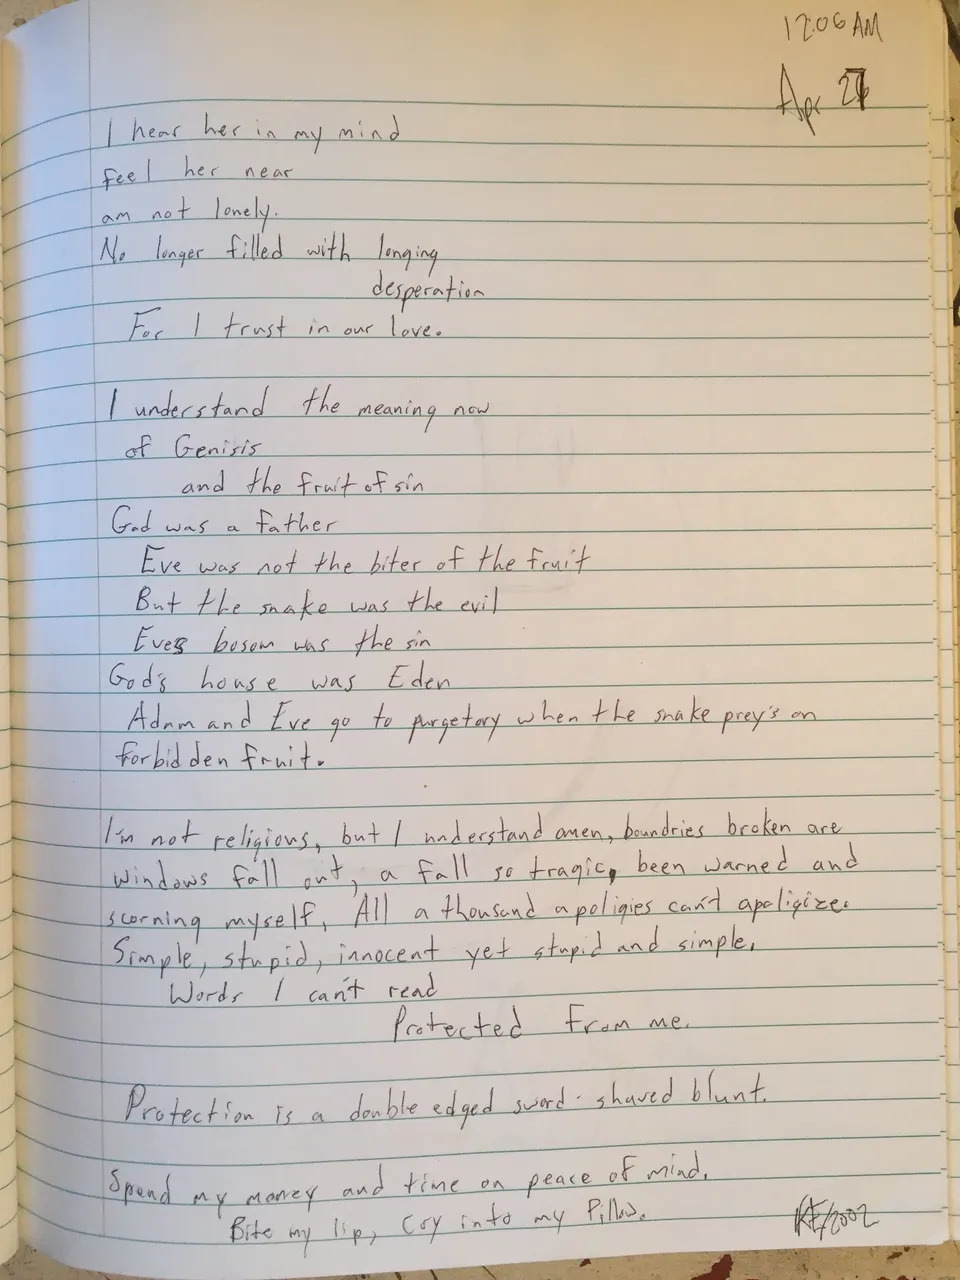 12:06 AM
Apr
I hear her in my mind
feel her near
am not lonely.
No longer filled with longing
desperation
For I trust in our love.
I understand the meaning now
of Genisis
and the fruit of sin
God was a father
Eve was not the biter of the fruit
But the snake was the evil
Eves bosom was the sin
God's house was Eden
Adam and Eve go to purgetory when the snake prey's on
forbidden fruit.
I'm not religious, but I understand amen, boundries broken are
windows fall out, a fall so tragic, been warned and
scorning myself, All a thousand apoligies can't apoligize.
Simple, stupid, innocent yet stupid and simple.
Words I can't read
Protected from me.
Protection is a double edged sword - shaved blunt.
Spend my money and time on peace of mind.
Bite my lip, Cry into my Pillow.
KE/2002